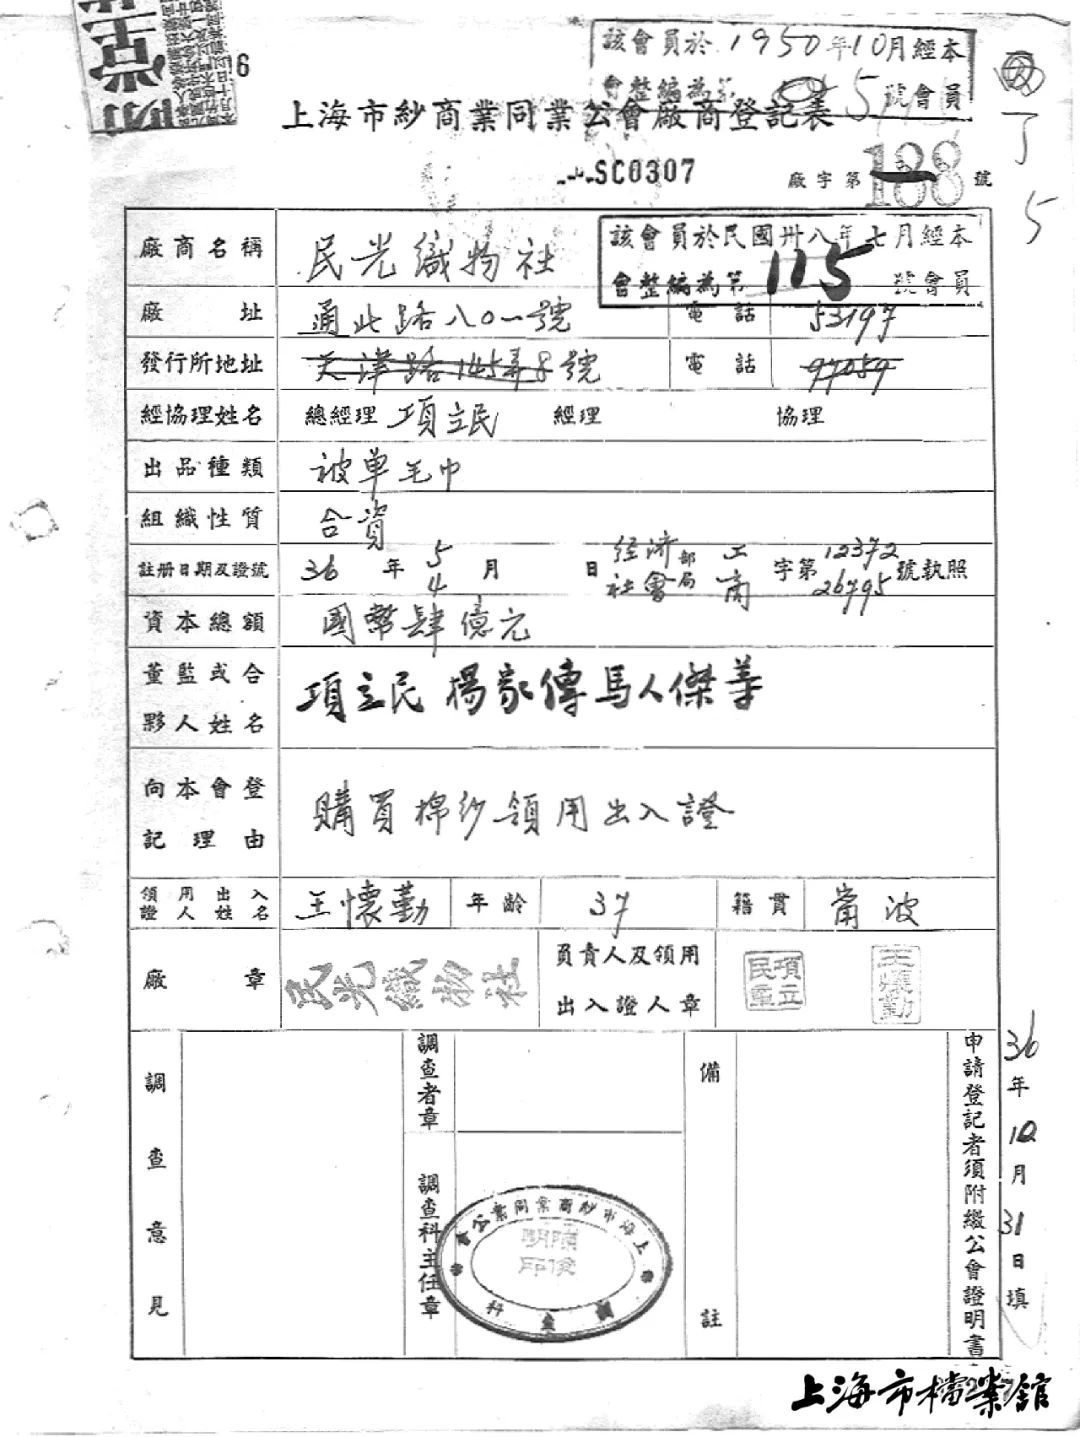 該會員於1950年10月經本
會整編為第5號會員
上海市紗商業同業公會廠商登記表
SC0307
廠字第188號
5
該會員於民國卅八年七月經本
會整編為第115號會員
廠商名稱 民光織物社
廠址 通北路八〇一號 電話 53197
發行所地址 天津路145弄8號 電話 97059
經協理姓名 總經理 項立民 經理 協理
出品種類 被單毛巾
組織性質 合資
註冊日期及證號 36年5月4日 經濟部工字第12372號執照
社會局商 26795
資本總額 國幣肆億元
董監或合夥人姓名 項立民 楊家傳 馬人傑等
向本會登記理由 購買棉紗領用出入證
領用出入證人姓名 王懷勤 年齡 37 籍貫 甯波
廠章 民光織物社 負責人及領用出入證人章 項立民章 王懷勤
調查意見
調查者章
調查科主任章
上海市紗商業同業公會
調查科
備註
申請登記者須附繳公會證明書
36年10月31日填
上海市檔案館